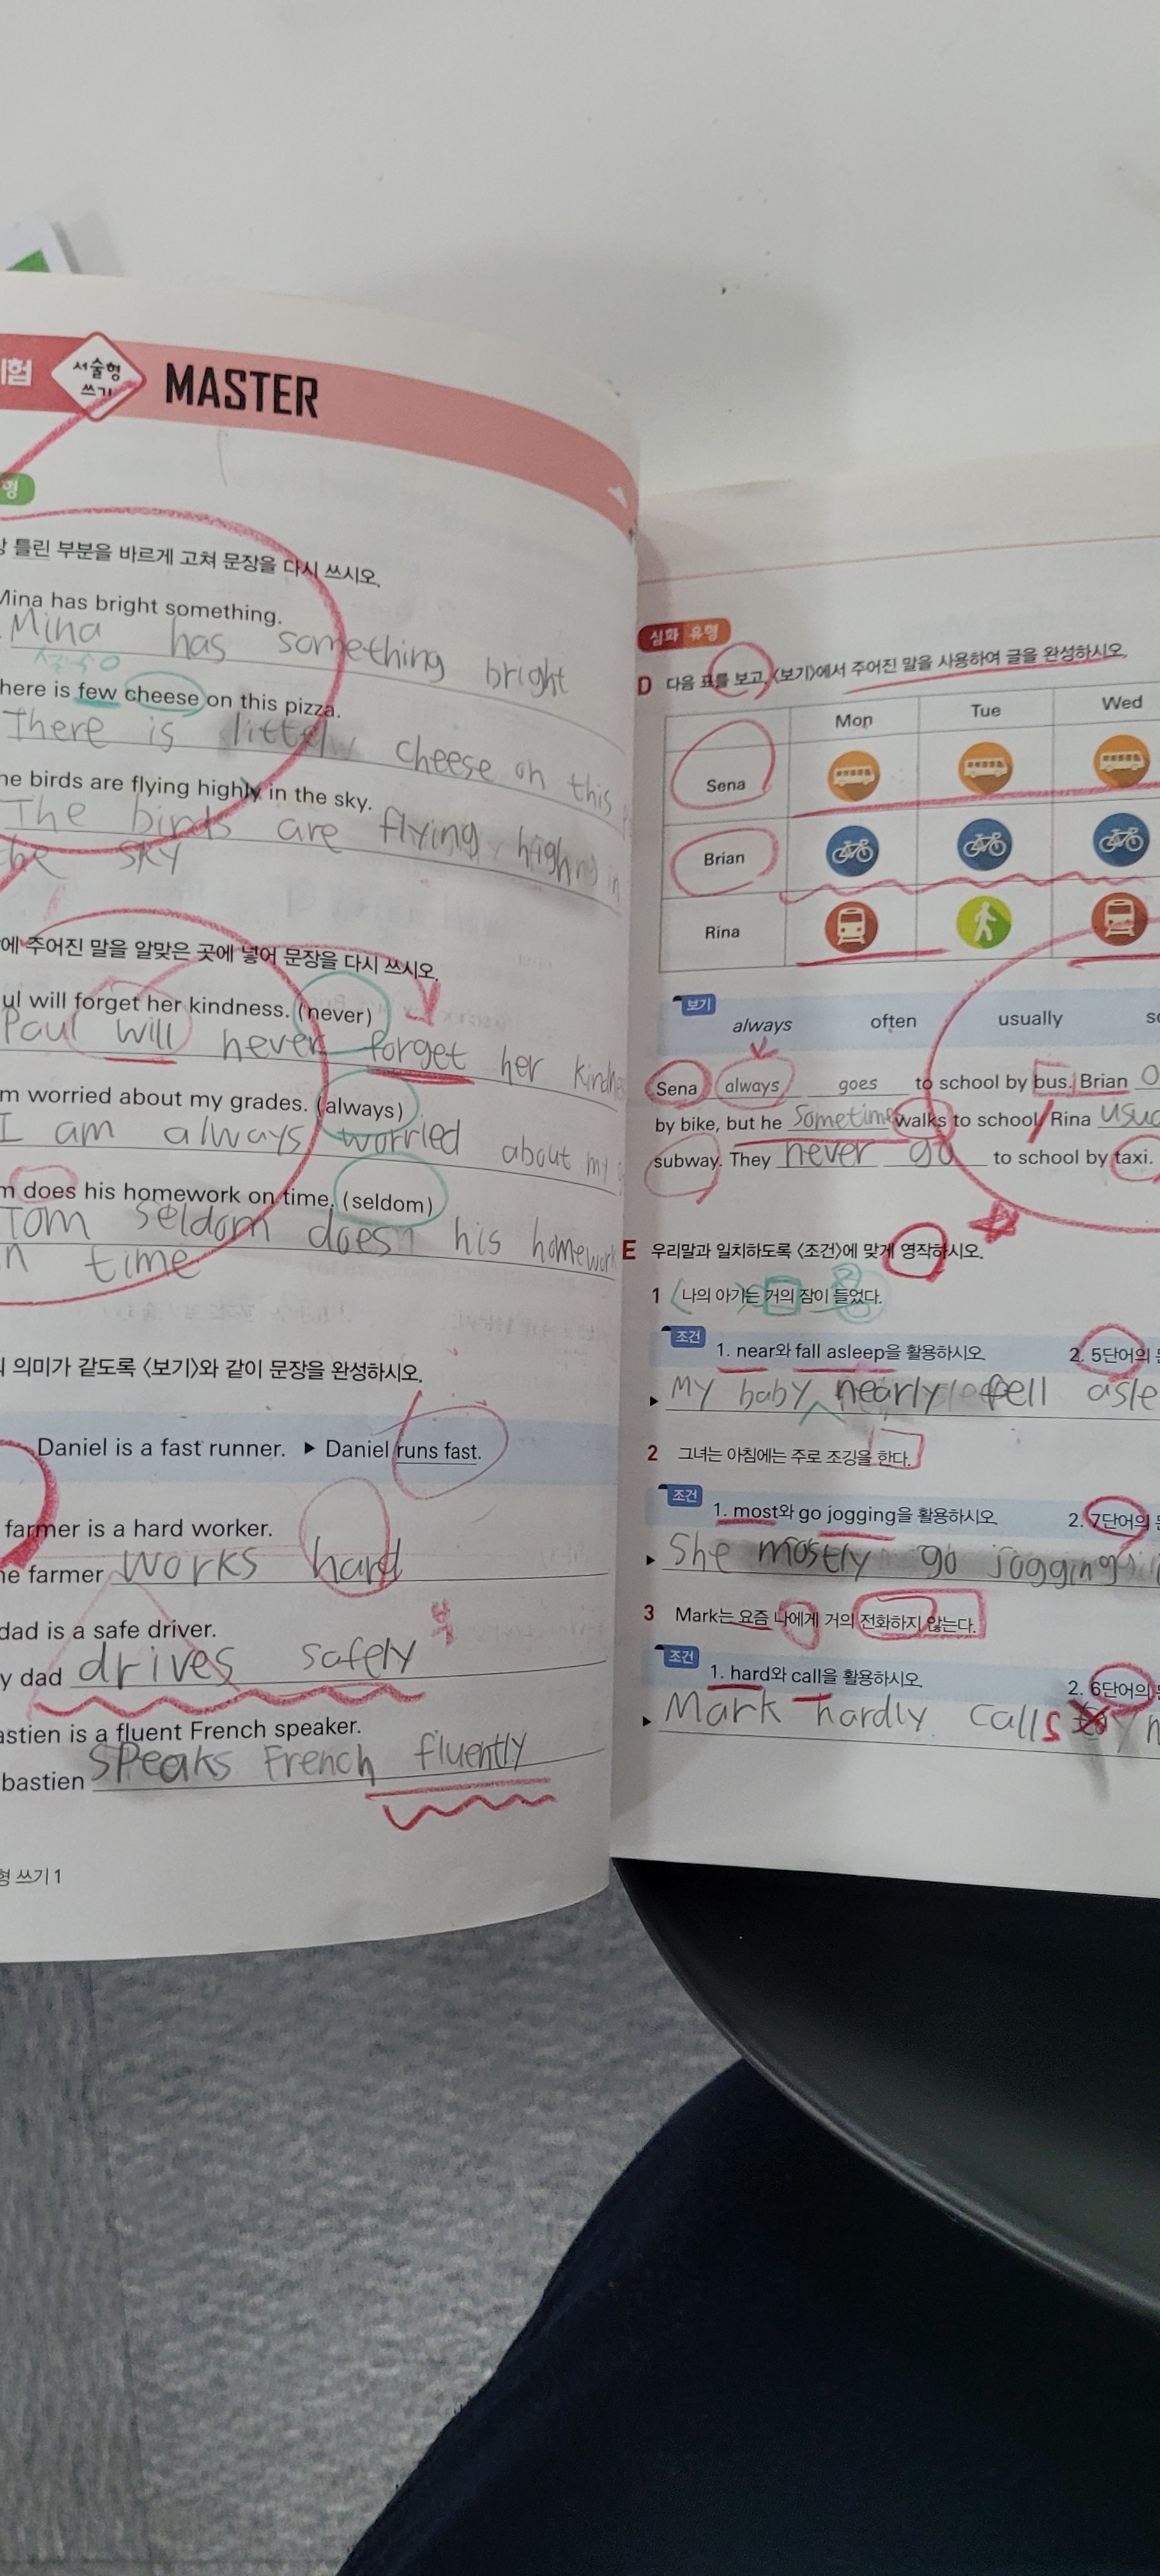 서술형
쓰기
MASTER
틀린 부분을 바르게 고쳐 문장을 다시 쓰시오.
Mina has bright something.
Mina has something bright
here is few cheese on this pizza.
There is cheese on this
he birds are flying highly in the sky.
The birds are flying high in
he sky
에 주어진 말을 알맞은 곳에 넣어 문장을 다시 쓰시오.
ul will forget her kindness. (never)
Paul will never forget her kindne
m worried about my grades. (always)
I am always worried about my
m does his homework on time. (seldom)
Tom seldom does his homework
n time
의미가 같도록 <보기>와 같이 문장을 완성하시오.
Daniel is a fast runner. ▶ Daniel runs fast.
farmer is a hard worker.
he farmer works hard
dad is a safe driver.
y dad drives safely
astien is a fluent French speaker.
bastien speaks French fluently
형 쓰기 1
심화 유형
D 다음 표를 보고, <보기>에서 주어진 말을 사용하여 글을 완성하시오.
Mon Tue Wed
Sena
Brian
Rina
보기
always often usually so
Sena always goes to school by bus. Brian o
by bike, but he sometimes walks to school. Rina usua
subway. They never go to school by taxi.
E 우리말과 일치하도록 <조건>에 맞게 영작하시오.
1 나의 아기는 거의 잠이 들었다.
조건
1. near와 fall asleep을 활용하시오 2. 5단어의
▶ My baby nearly fell asle
2 그녀는 아침에는 주로 조깅을 한다.
조건
1. most와 go jogging을 활용하시오 2. 7단어의
▶ She mostly go jogging
3 Mark는 요즘 나에게 거의 전화하지 않는다.
조건
1. hard와 call을 활용하시오 2. 6단어의
▶ Mark hardly calls